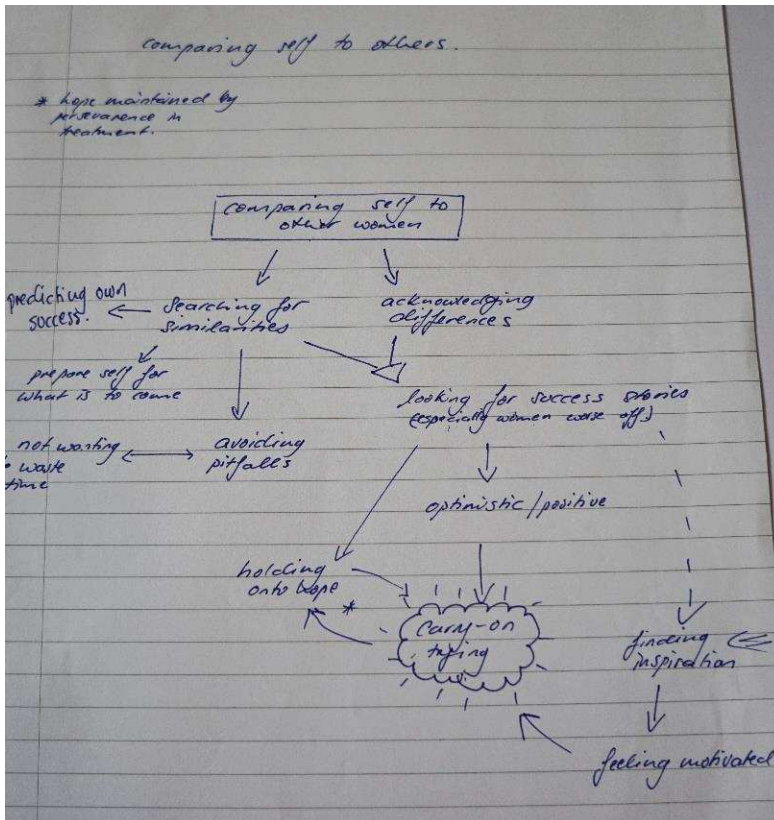 comparing self to others.
* hope maintained by
perseverance in
treatment.
comparing self to
other women
predicting own
success.
searching for
similarities
acknowledging
differences
prepare self for
what is to come
looking for success stories
(especially women worse off)
not wanting
waste
time
avoiding
pitfalls
optimistic/positive
holding
onto hope *
carry-on
trying
finding
inspiration
feeling motivated